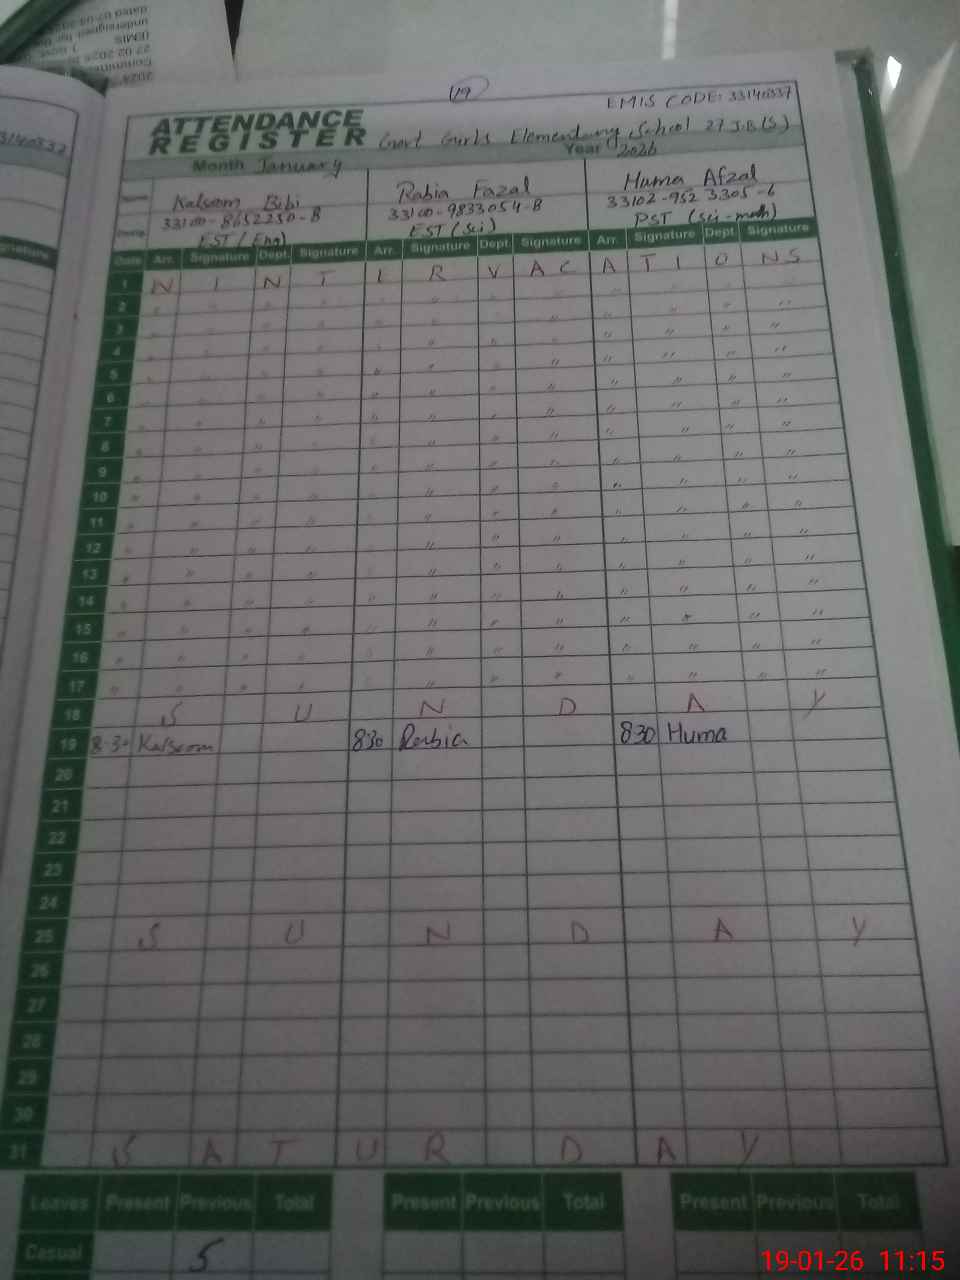 19
EMIS CODE: 33140337
ATTENDANCE
REGISTER
Govt Girls Elementary School 27 J.B(S)
Month January
Year 2026
Name Kalsoom Bibi Rabia Fazal Huma Afzal
33100-8652250-8 33100-9833054-8 33102-952 3305-6
Desig. EST (Eng) EST (Sci) PST (Sci-math)
Date Arr. Signature Dept. Signature Arr. Signature Dept. Signature Arr. Signature Dept. Signature
1 W I N T E R V A C A T I O N S
2 " " " " " " " " " " "
3 " " " " " " " " " " "
4 " " " " " " " " " " "
5 " " " " " " " " " " "
6 " " " " " " " " " " "
7 " " " " " " " " " " "
8 " " " " " " " " " " "
9 " " " " " " " " " " "
10 " " " " " " " " " " "
11 " " " " " " " " " " "
12 " " " " " " " " " " "
13 " " " " " " " " " " "
14 " " " " " " " " " " "
15 " " " " " " " " " " "
16 " " " " " " " " " " "
17 " " " " " " " " " " "
18 S U N D A Y
19 8-30 Kalsoom 830 Rabia 830 Huma
20
21
22
23
24
25 S U N D A Y
26
27
28
29
30
31 S A T U R D A Y
Leaves Present Previous Total Present Previous Total Present Previous Total
Casual 5
19-01-26 11:15